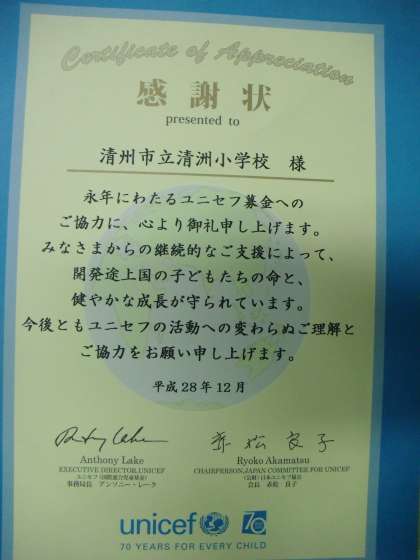 Certificate of Appreciation
感謝状
presented to
清州市立清洲小学校 様
永年にわたるユニセフ募金への
ご協力に、心より御礼申し上げます。
みなさまからの継続的なご支援によって、
開発途上国の子どもたちの命と、
健やかな成長が守られています。
今後ともユニセフの活動への変わらぬご理解と
ご協力をお願い申し上げます。
平成28年12月
Anthony Lake
EXECUTIVE DIRECTOR, UNICEF
ユニセフ（国際連合児童基金）
事務局長 アンソニー・レーク
赤松良子
Ryoko Akamatsu
CHAIRPERSON, JAPAN COMMITTEE FOR UNICEF
（公財）日本ユニセフ協会
会長 赤松 良子
unicef 70
70 YEARS FOR EVERY CHILD